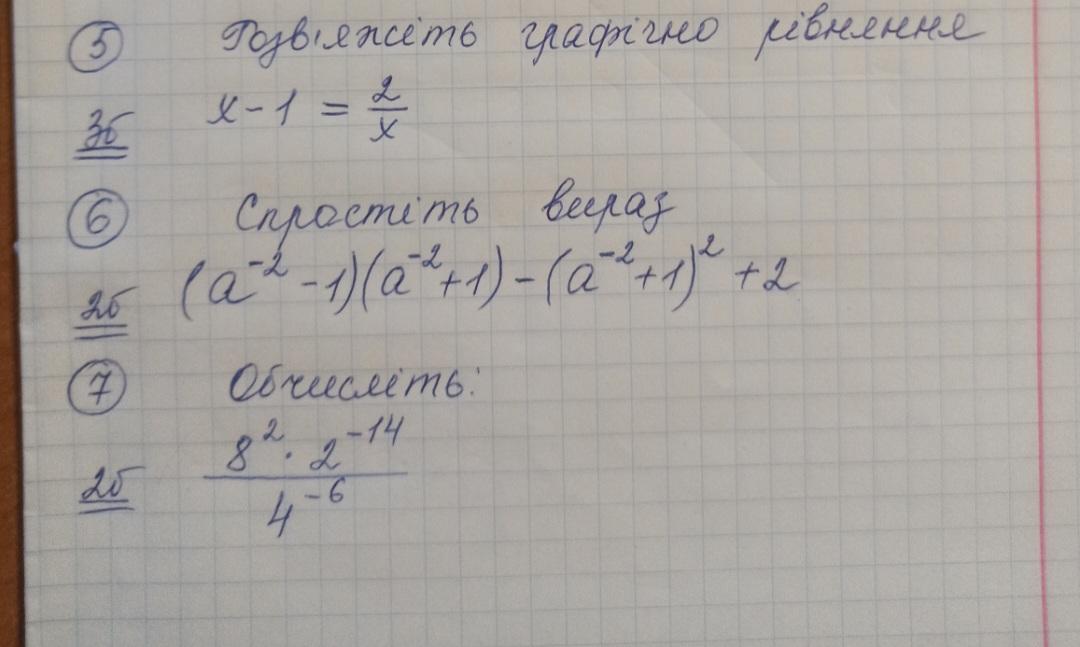 5 Розв'яжіть графічно рівняння
3б x - 1 = 2/x
6 Спростіть вираз
2б (a⁻² - 1)(a⁻² + 1) - (a⁻² + 1)² + 2
7 Обчисліть:
2б 8² · 2⁻¹⁴ / 4⁻⁶